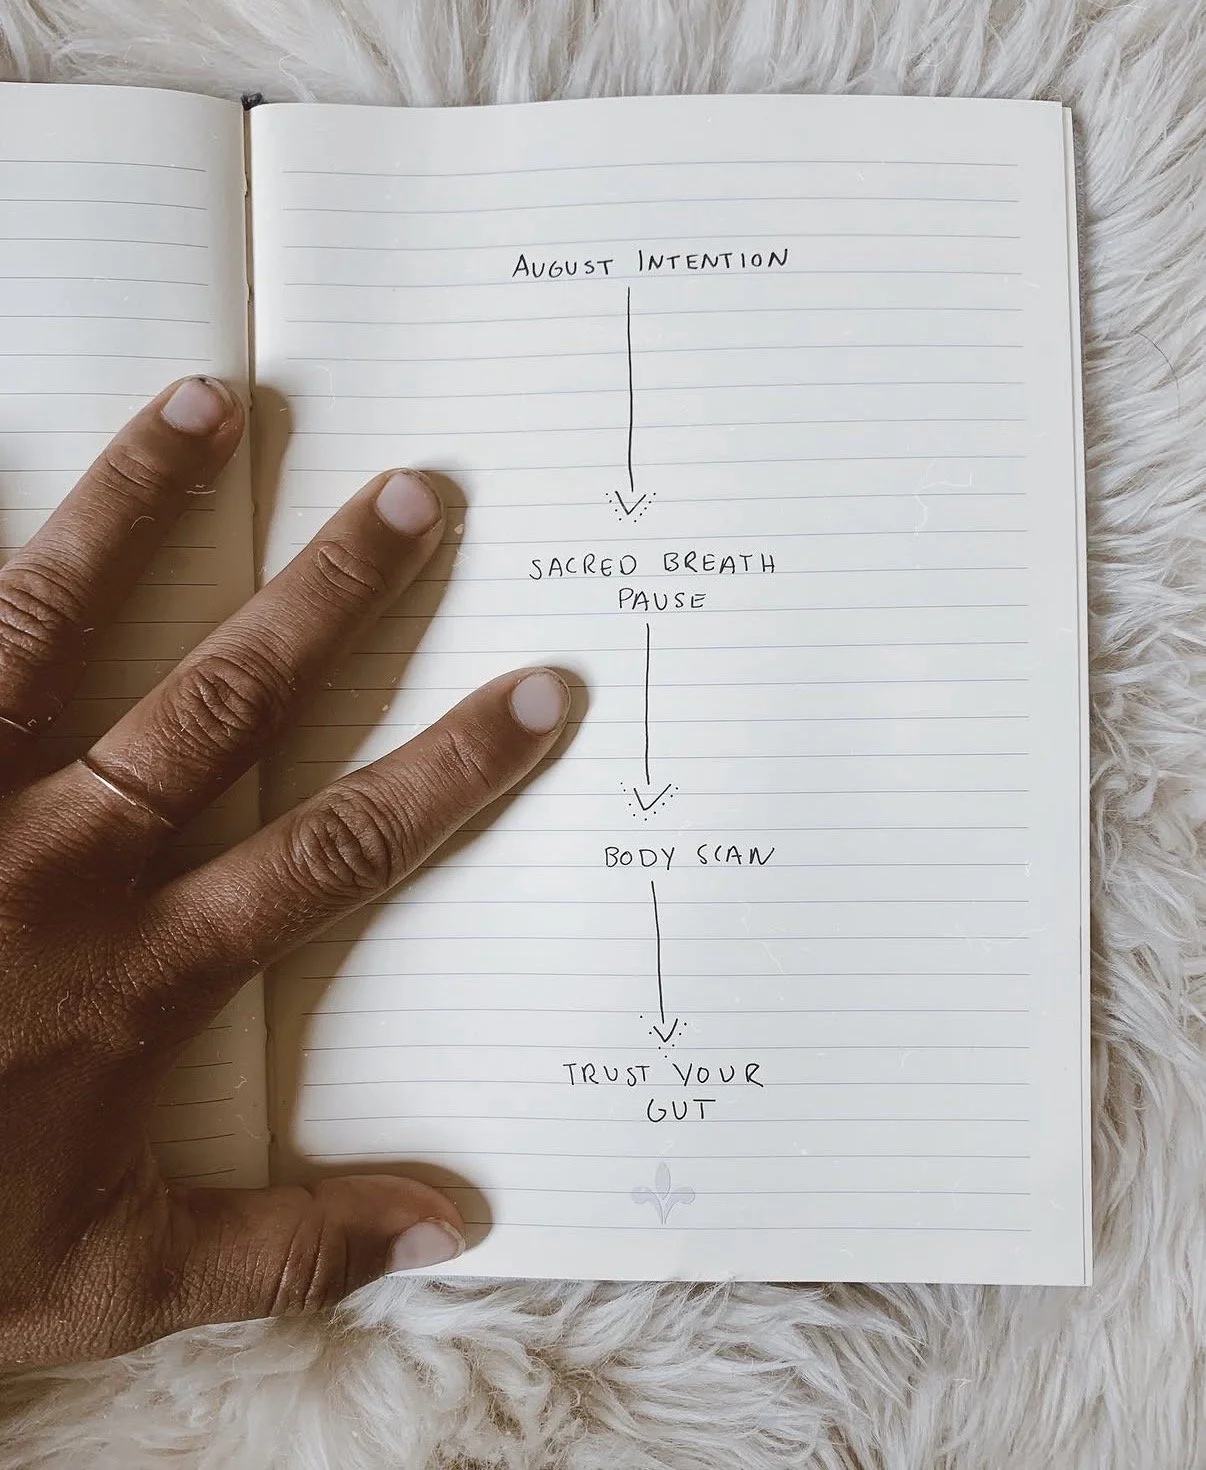 AUGUST INTENTION
SACRED BREATH
PAUSE
BODY SCAN
TRUST YOUR
GUT